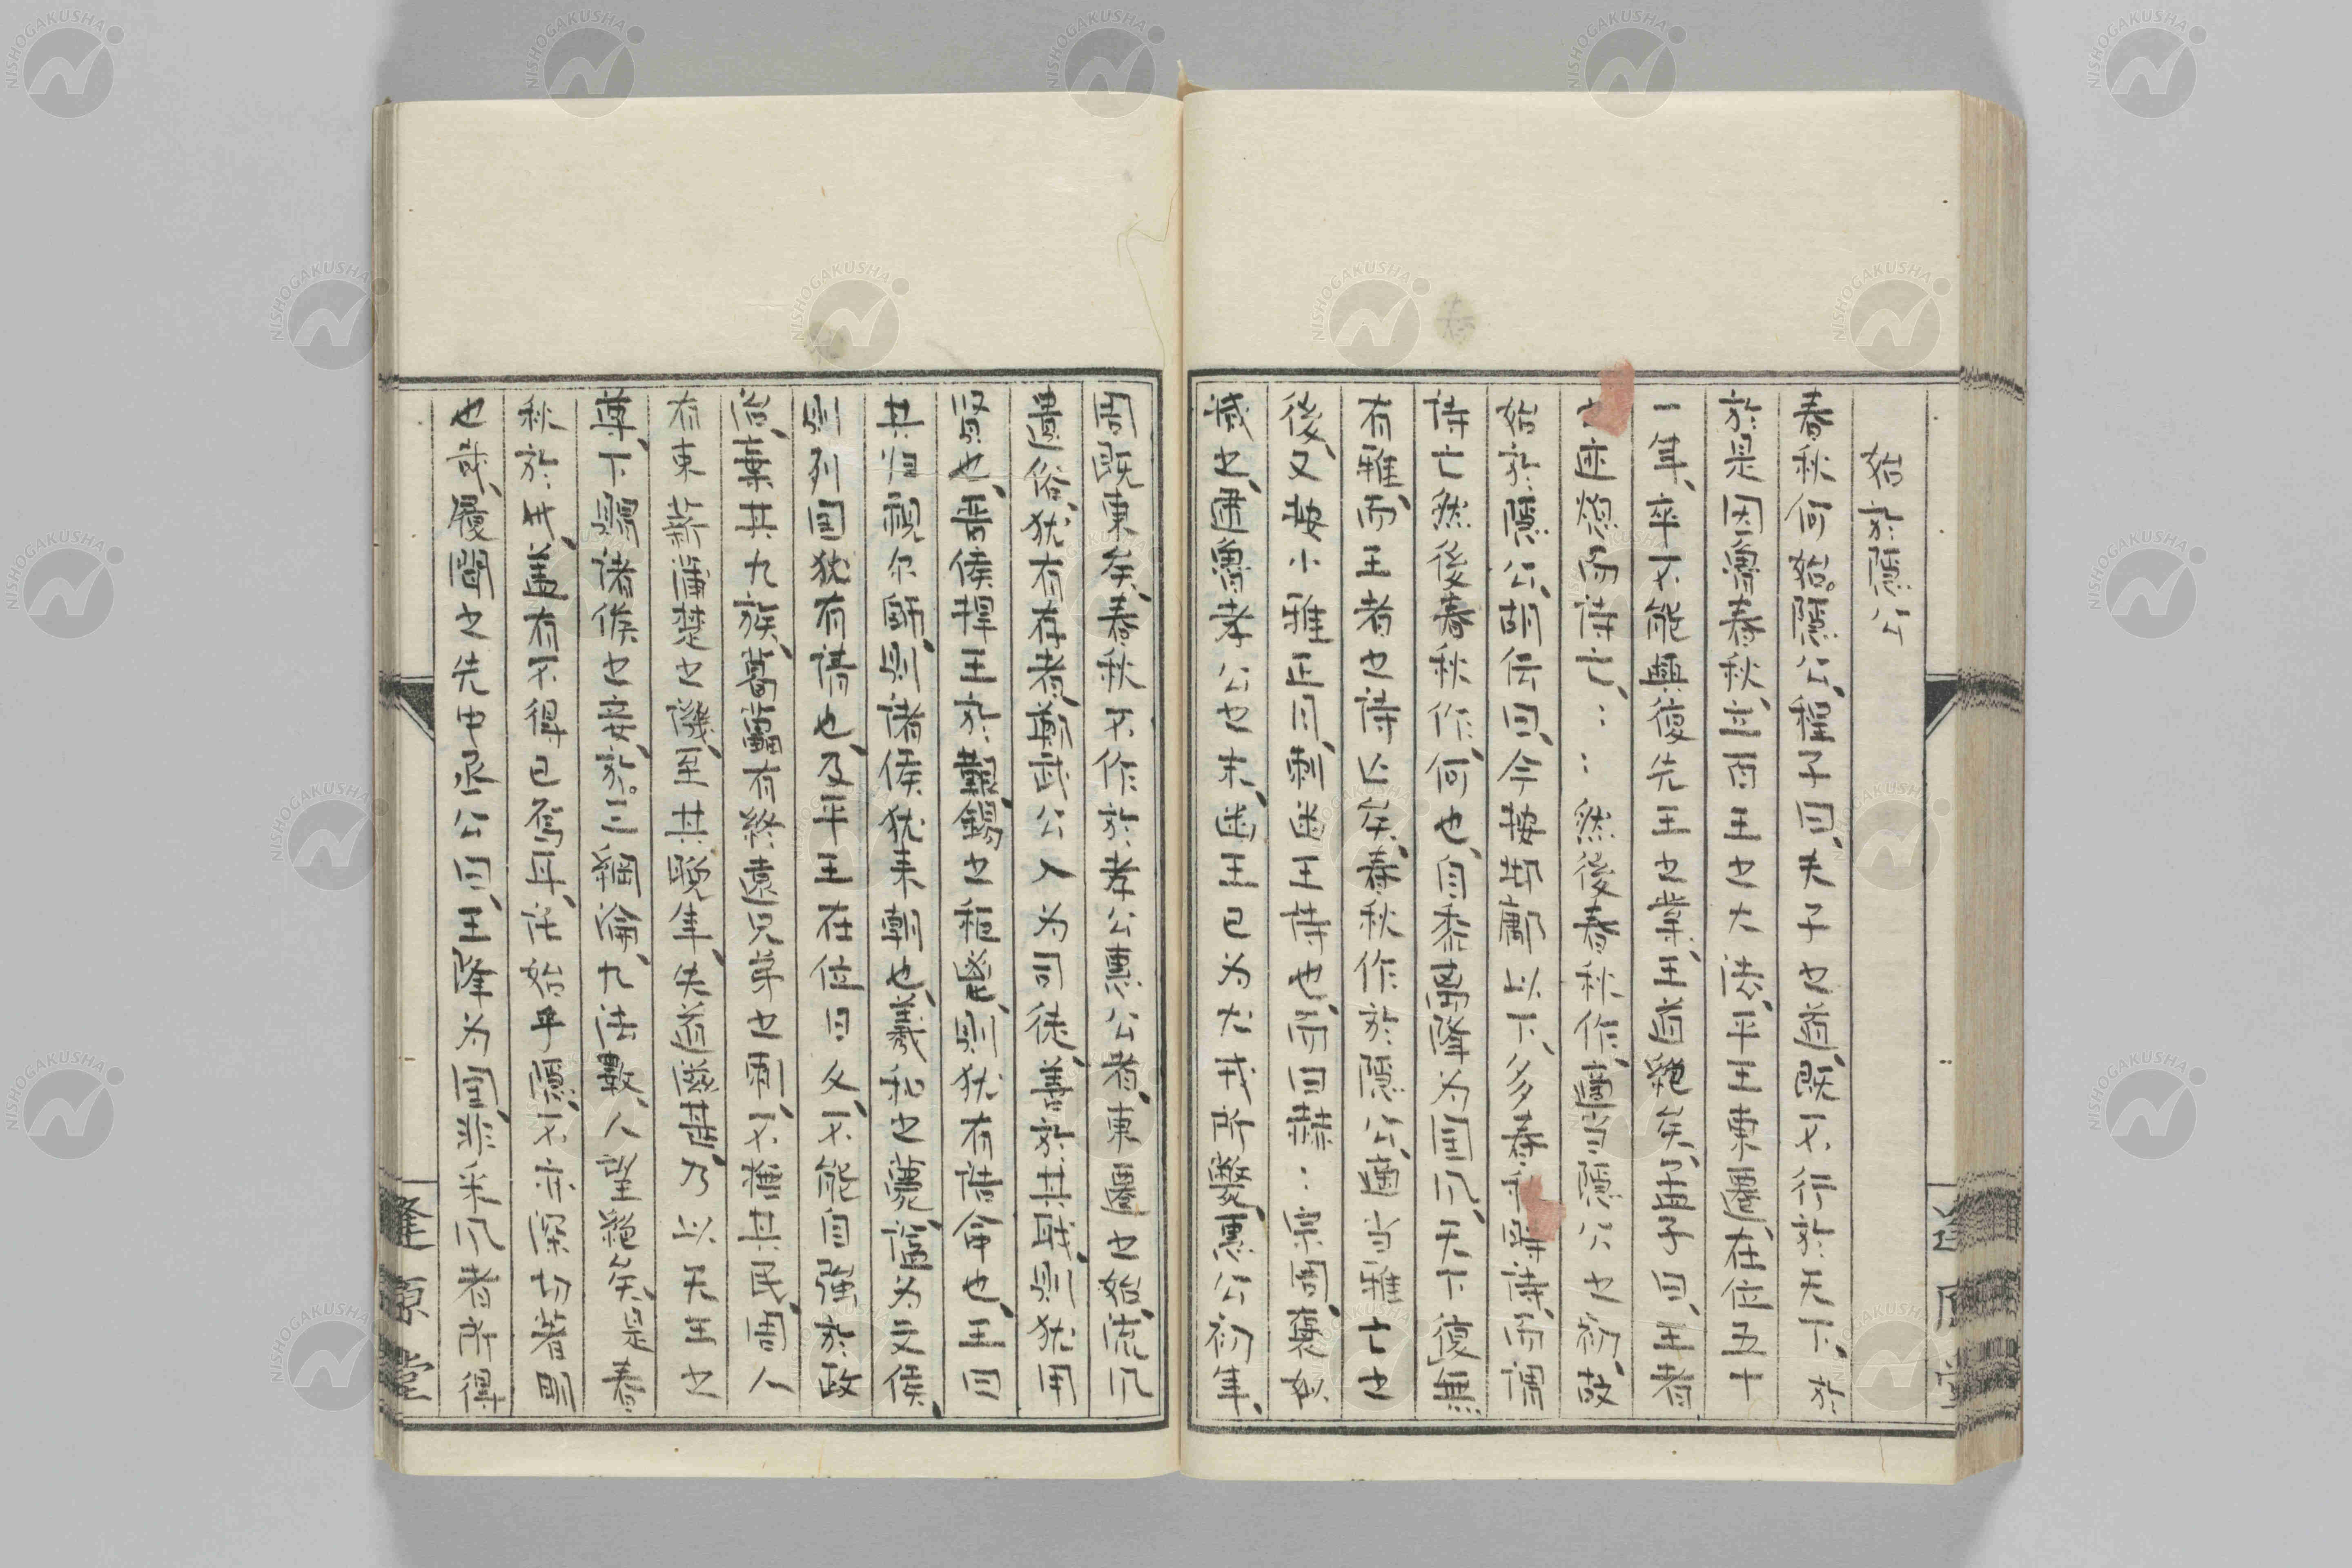 始於隱公
春秋何始隱公、程子曰、夫子之道、既不行於天下、於
於是因魯春秋、立百王之大法、平王東遷、在位五十
一年、卒不能興復先王之業、王道絕矣、孟子曰、王者
之迹熄而詩亡、︰︰︰然後春秋作、適当隱公之初、故
始於隱公、胡伝曰、今按邶鄘以下、多春秋時詩、而謂
詩亡然後春秋作、何也、自黍離降为国风、天下復無
有雅、而王者之詩亡矣、春秋作於隱公、適当雅亡之
後、又按小雅正月、刺幽王詩也、而曰赫︰宗周、褒姒
烕之、逮魯孝公之末、幽王已为犬戎所斃、惠公初年、
周既東矣、春秋不作於孝公惠公者、東遷之始、流风
遺俗、犹有存者、鄭武公入为司徒、善於其職、則犹用
贤也、晉侯捍王於艱、錫之秬鬯、則犹有誥命也、王曰
其归視尔師、則諸侯犹来朝也、義和之薨、謚为文侯、
則列国犹有請也、及平王在位日久、不能自強於政
治、棄其九族、葛藟有終遠兄弟之刺、不撫其民、周人
有束薪蒲楚之譏、至其晚年、失道滋甚、乃以天王之
尊、下賵諸侯之妾、於三綱淪九法斁、人望絕矣、是春
秋於此、蓋有不得已焉耳、託始乎隱、不亦深切著明
也哉、履聞之先中丞公曰、王降为国、非采风者所得
隆原堂
NISHOGAKUSHA